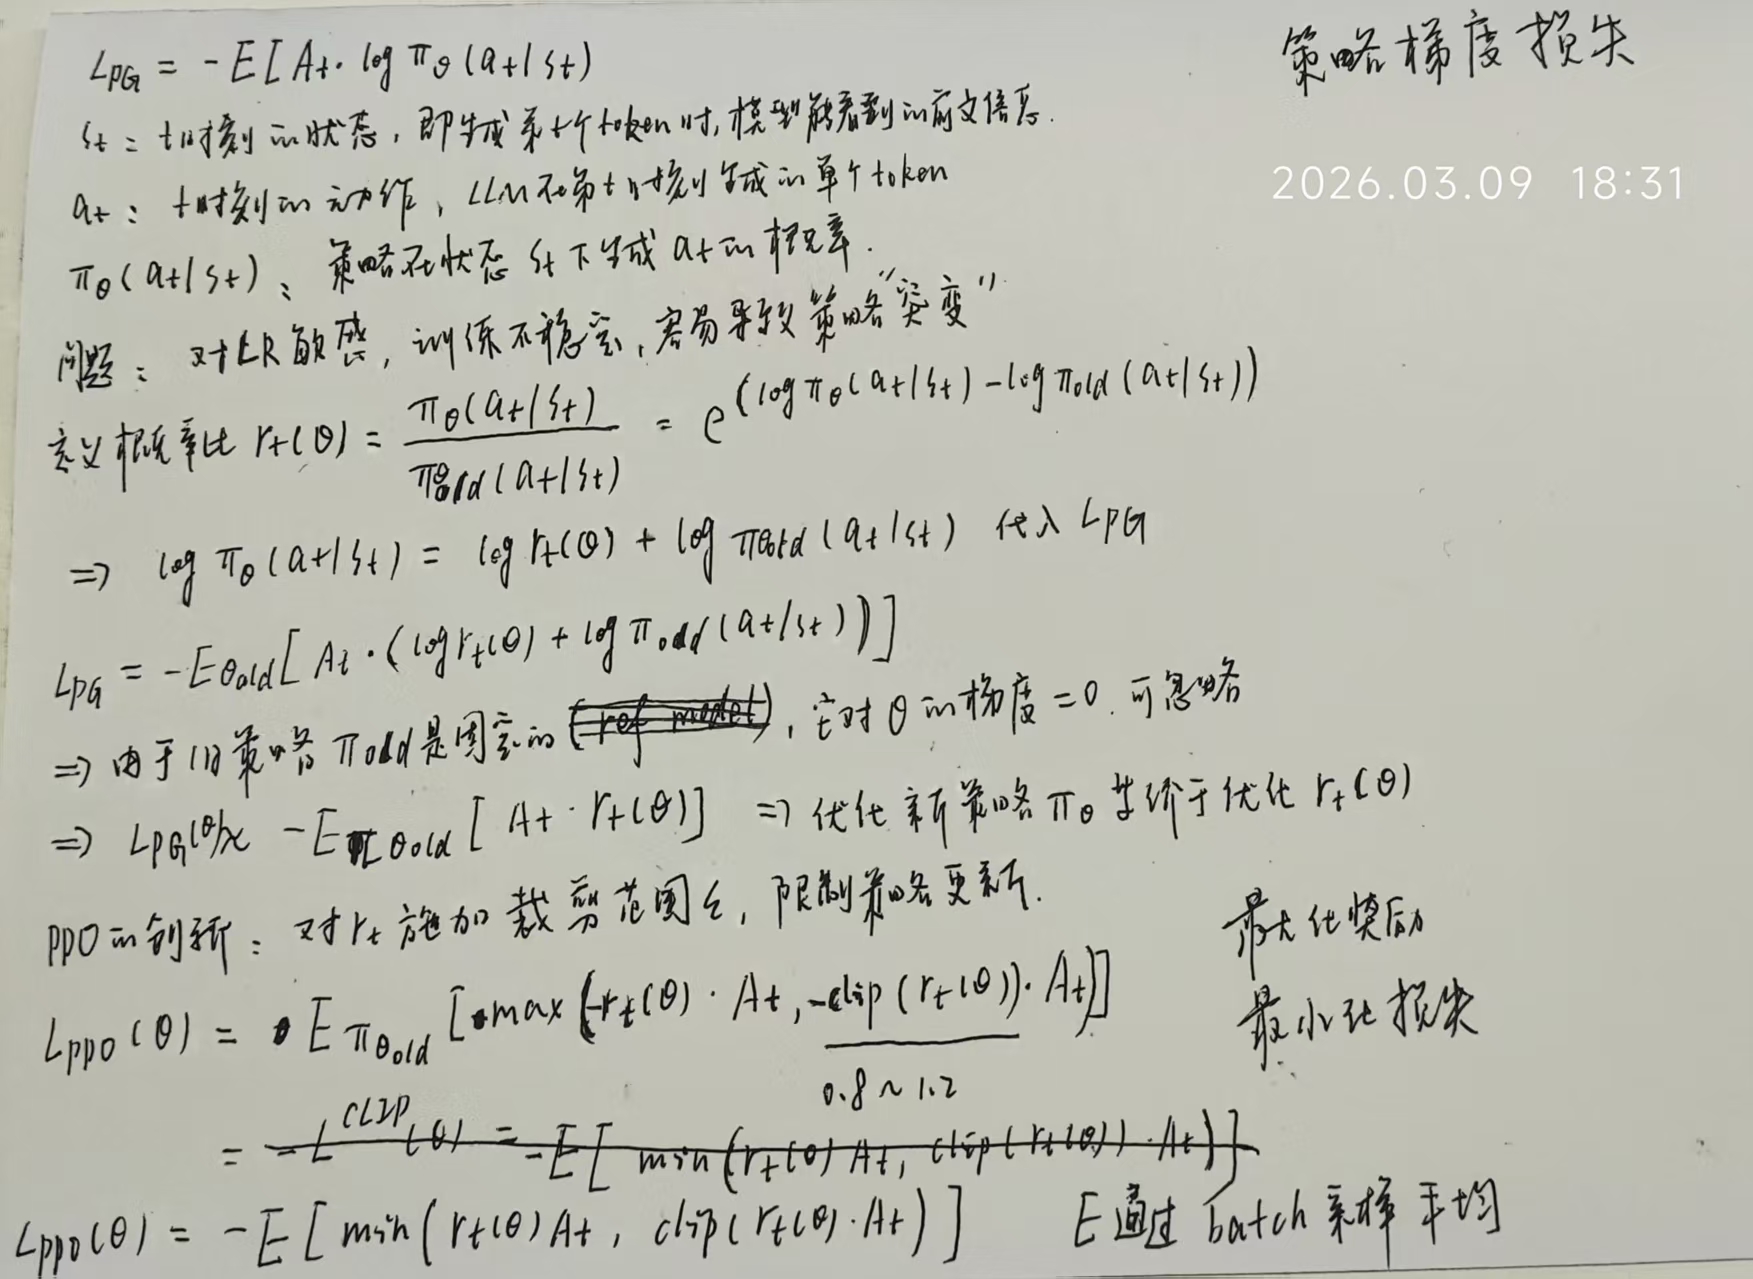 策略梯度损失
L_PG = -E[A_t · log π_θ(a_t|s_t)
s_t : t时刻的状态，即生成第t个token时，模型能看到的前文信息.
2026.03.09 18:31
a_t : t时刻的动作，LLM在第t时刻生成的单个token
π_θ(a_t|s_t) : 策略在状态 s_t 下生成 a_t 的概率.
问题 : 对LR敏感，训练不稳定，容易导致策略“突变”
定义概率比 r_t(θ) = π_θ(a_t|s_t) / π_θold(a_t|s_t) = e^(log π_θ(a_t|s_t) - log π_old(a_t|s_t))
=> log π_θ(a_t|s_t) = log r_t(θ) + log π_θold(a_t|s_t) 代入 L_PG
L_PG = -E_θold[A_t · (log r_t(θ) + log π_old(a_t|s_t))]
=> 由于旧策略 π_old 是固定的 (ref model)，它对 θ 的梯度=0. 可忽略
=> L_PG(θ) ∝ -E_πθold [A_t · r_t(θ)] => 优化新策略 π_θ 等价于优化 r_t(θ)
PPO的创新 : 对 r_t 施加裁剪范围 ε，限制策略更新.
最大化奖励
最小化损失
L_PPO(θ) = E_πθold [max(-r_t(θ) · A_t, -clip(r_t(θ)) · A_t)]
0.8 ~ 1.2
= -L^CLIP(θ) = -E[min(r_t(θ) A_t, clip(r_t(θ)) · A_t)]
L_PPO(θ) = -E[min(r_t(θ)A_t, clip(r_t(θ) · A_t)] E通过 batch 采样平均